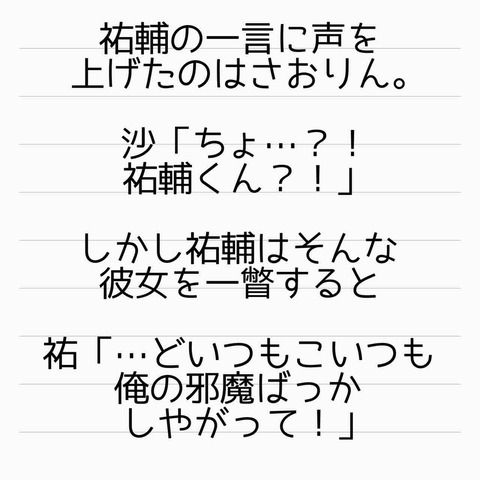 祐輔の一言に声を
上げたのはさおりん。
沙「ちょ…？！
祐輔くん？！」
しかし祐輔はそんな
彼女を一瞥すると
祐「…どいつもこいつも
俺の邪魔ばっか
しやがって！」